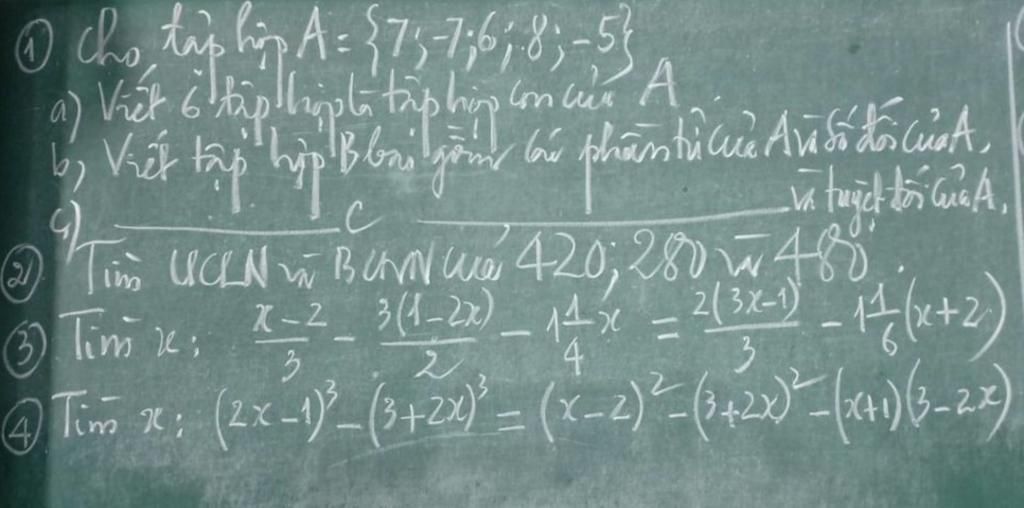 ① Cho tập hợp A = {7; -7; 6; 8; -5}
a) Viết 6 tập hợp là tập hợp con của A
b) Viết tập hợp B bao gồm các phần tử của A và số đối của A.
c) ________ C ________ và tuyệt đối của A.
② Tìm ƯCLN và BCNN của 420; 280 và 480.
③ Tìm x: \frac{x-2}{3} - \frac{3(1-2x)}{2} - 1\frac{1}{4}x = \frac{2(3x-1)}{3} - 1\frac{1}{6}(x+2)
④ Tìm x: (2x-1)³ - (3+2x)³ = (x-2)² - (3+2x)² - (x+1)(3-2x)